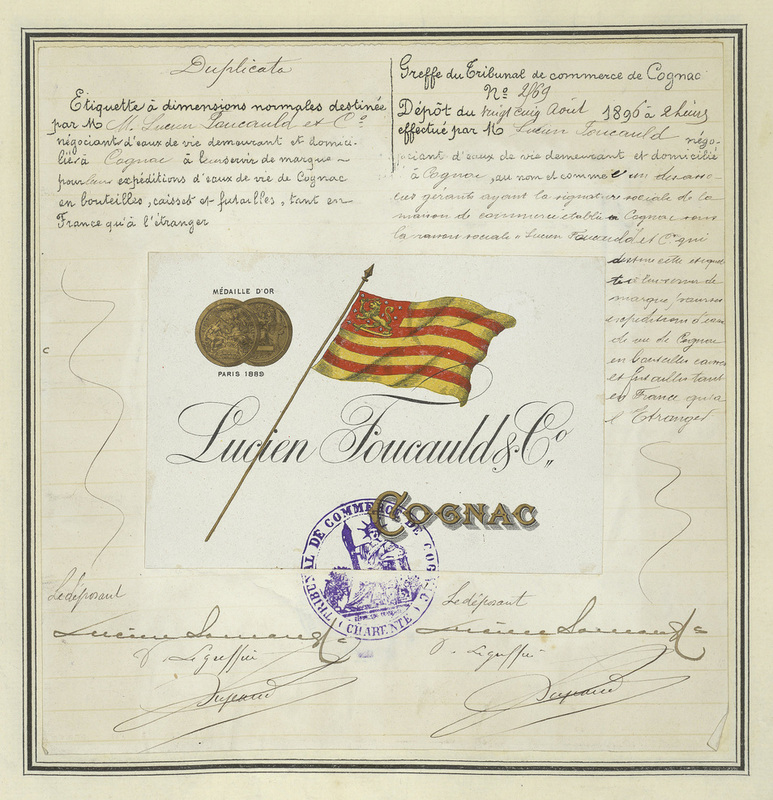 Duplicata
Etiquette à dimensions normales destinée
par M M. Lucien Foucauld et Cº
négociants d'eaux de vie demeurant et domici-
liés à Cognac à leur servir de marque
pour leurs expéditions d'eaux de vie de Cognac
en bouteilles, caisses et futailles, tant en
France qu'à l'étranger
Greffe du Tribunal de commerce de Cognac
Nº 2869
Dépôt du vingt cinq Août 1896 à 2 heures
effectué par M Lucien Foucauld négo-
ciant d'eaux de vie demeurant et domicilié
à Cognac, au nom et comme l'un des asso-
ciés gérants ayant la signature sociale de la
maison de commerce établie à Cognac sous
la raison sociale "Lucien Foucauld et Cº qui
destine cette étiquet
te à leur servir de
marque pour ses
expéditions d'eaux
de vie de Cognac
en bouteilles caisses
et futailles tant
en France qu'à
l'Etranger
MÉDAILLE D'OR
PARIS 1889
Lucien Foucauld & Cº
COGNAC
TRIBUNAL DE COMMERCE DE COGNAC
(CHARENTE)
Le déposant
Le déposant